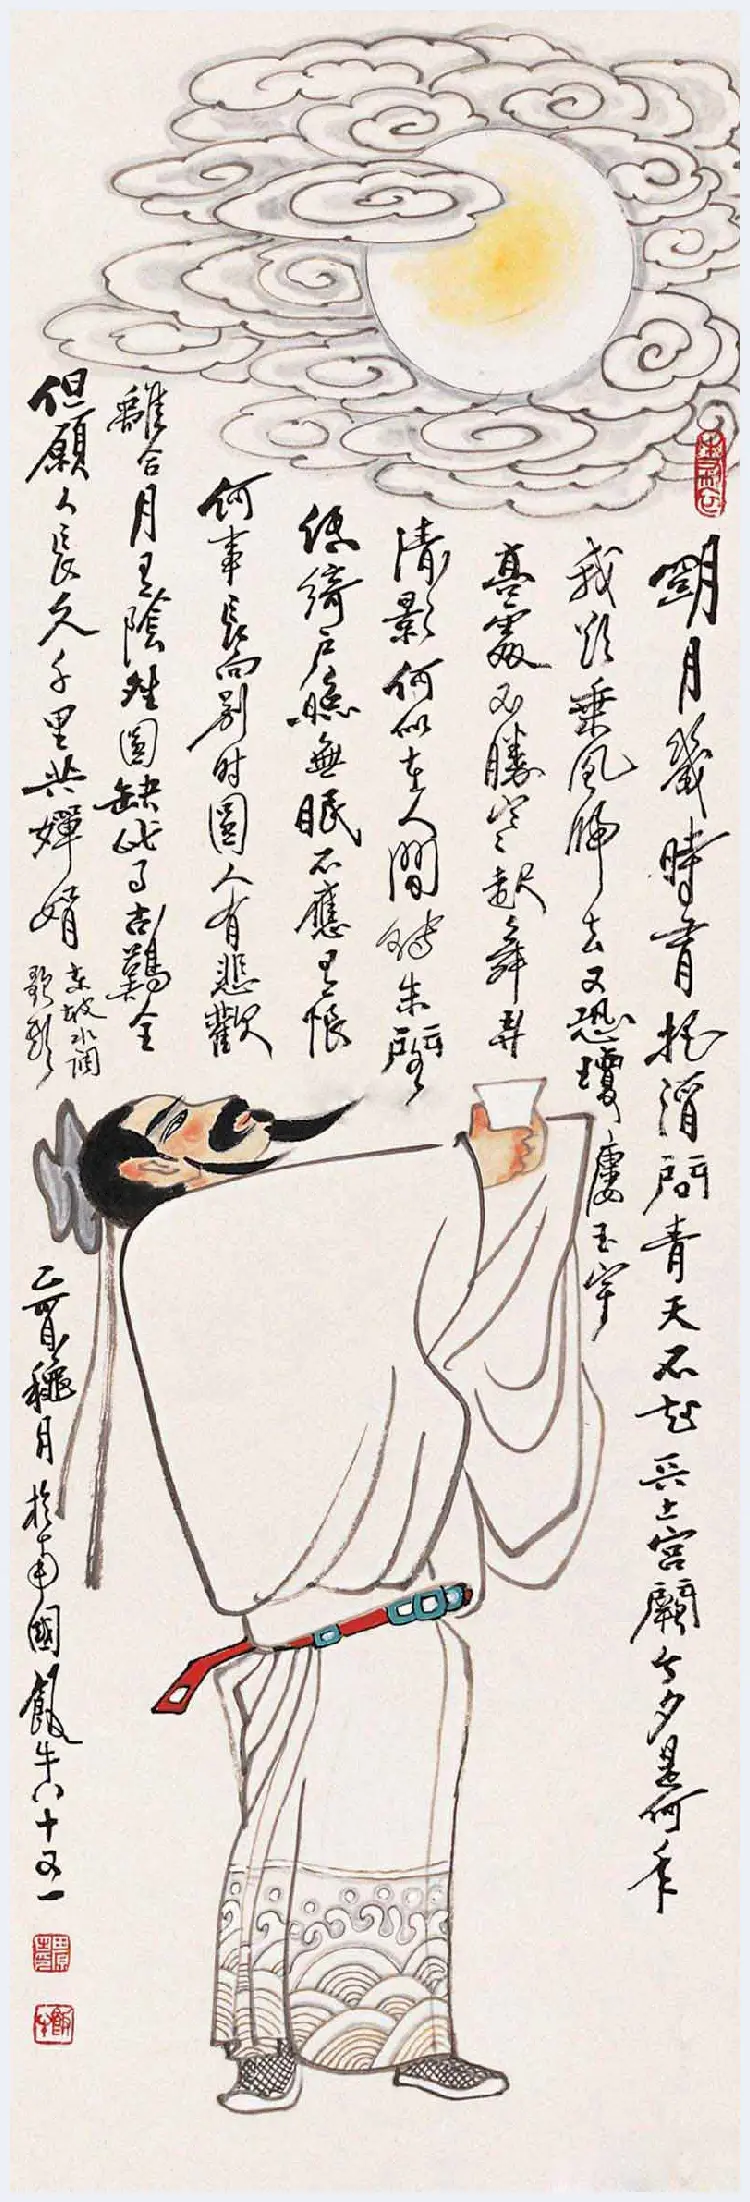 明月幾時有把酒問青天不知天上宮闕今夕是何年
我欲乘風歸去又恐瓊廔玉宇
高處不勝寒起舞弄
清影何似在人間轉朱閣
低綺戶照無眠不應有恨
何事長向別時圓人有悲歡
離合月有陰晴圓缺此事古難全
但願人長久千里共嬋娟
東坡水調
歌頭
乙酉穐月於南國飯牛八十又一
田原
飯牛